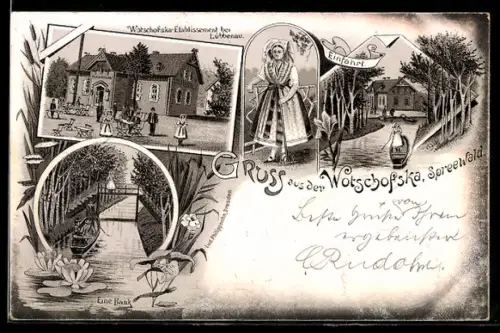 "Wotschofska-Etablissement bei
Lübbenau.
Einfahrt.
Gruss aus der Wotschofska, Spreewald.
Eine Bank
Beste Grüße von
Ihrem
ergebensten
CRudolph.